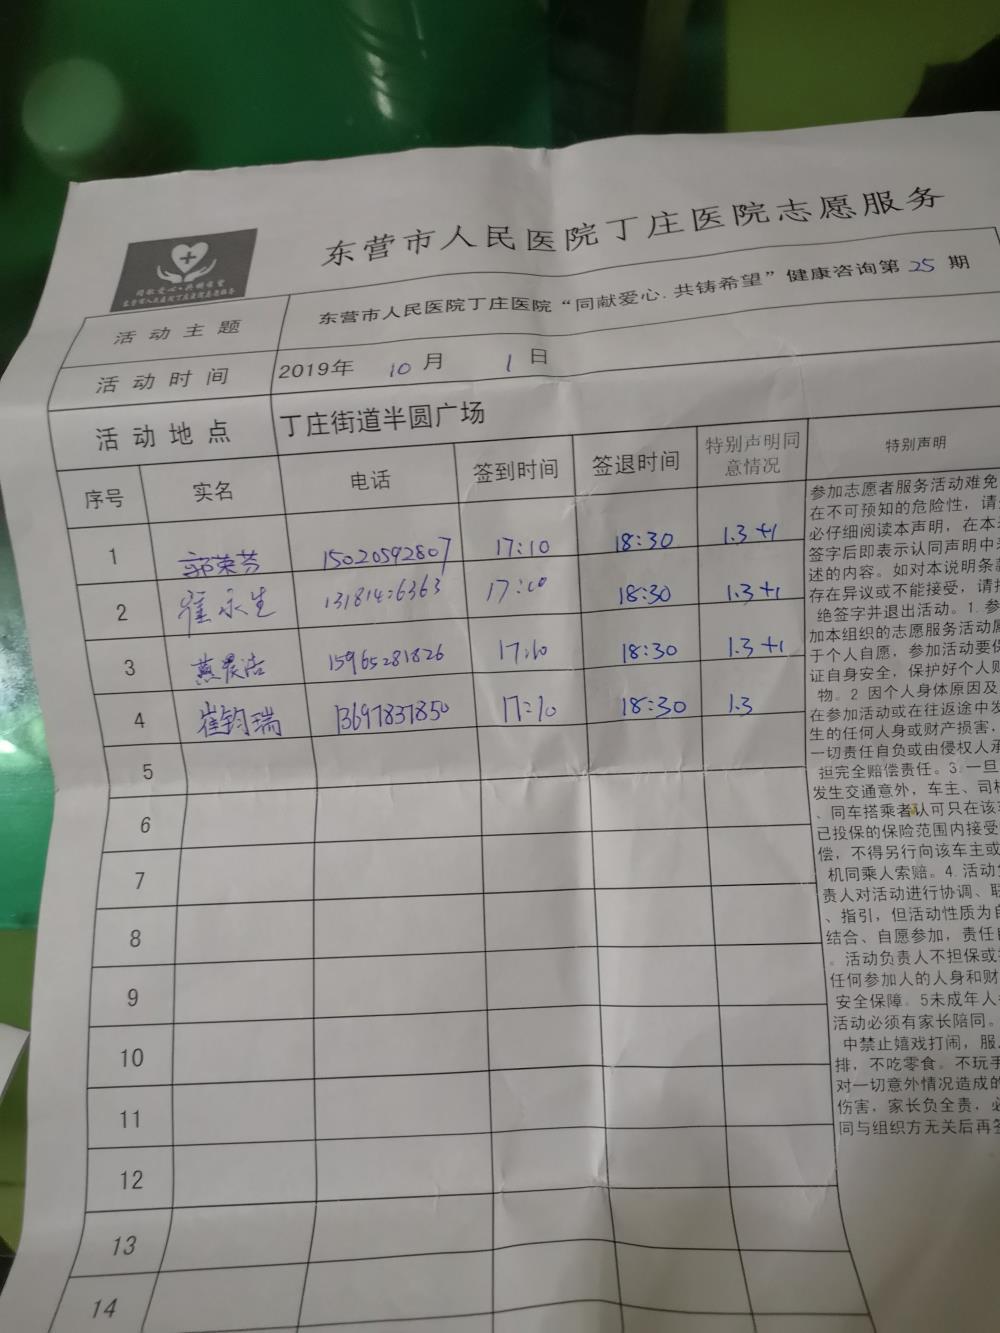 东营市人民医院丁庄医院志愿服务
同献爱心·共铸希望
东营市人民医院丁庄医院志愿服务
活动主题 东营市人民医院丁庄医院“同献爱心.共铸希望”健康咨询第25期
活动时间 2019年 10月 1日
活动地点 丁庄街道半圆广场
序号 实名 电话 签到时间 签退时间 特别声明同意情况 特别声明
1 郭荣芬 15020592807 17:10 18:30 1.3+1
2 崔永生 17:10 18:30 1.3+1
3 燕晨洁 15965281826 17:10 18:30 1.3+1
4 崔钧瑞 13697837850 17:10 18:30 1.3
5
6
7
8
9
10
11
12
13
14
参加志愿者服务活动难免
在不可预知的危险性，请
必仔细阅读本声明，在本
签字后即表示认同声明中
述的内容。如对本说明条
存在异议或不能接受，请
绝签字并退出活动。1.参
加本组织的志愿服务活动
于个人自愿，参加活动要
证自身安全，保护好个人
物。2 因个人身体原因及
在参加活动或在往返途中发
生的任何人身或财产损害，
一切责任自负或由侵权人
担完全赔偿责任。3.一旦
发生交通意外，车主、司
、同车搭乘者认可只在该
已投保的保险范围内接受
偿，不得另行向该车主或
机同乘人索赔。4.活动
责人对活动进行协调、联
、指引，但活动性质为自
结合、自愿参加，责任自
。活动负责人不担保或
任何参加人的人身和财
安全保障。5未成年人
活动必须有家长陪同。
中禁止嬉戏打闹，服
排，不吃零食。不玩手
对一切意外情况造成的
伤害，家长负全责，必
同与组织方无关后再签